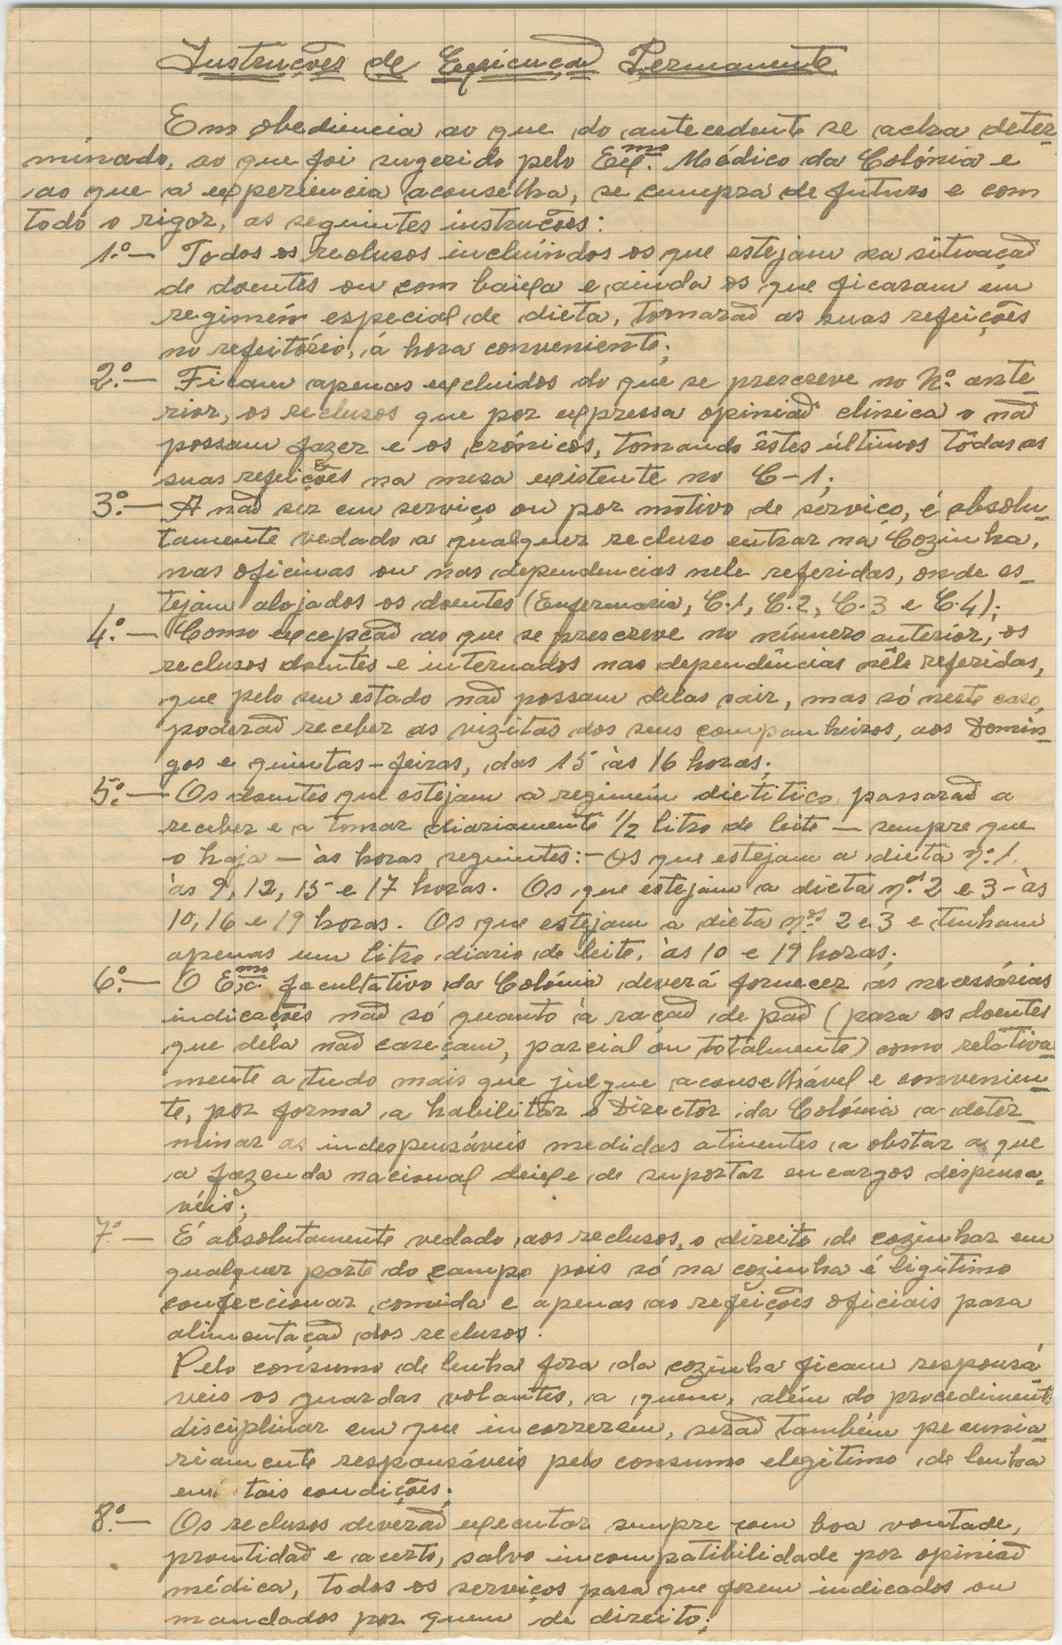 Instruções de Execução Permanente
Em obediencia ao que do antecedente se acha deter-
minado, ao que foi sugerido pelo Exmo. Médico da Colónia e
ao que a experiencia aconselha, se cumpra de futuro e com
todo o rigor, as seguintes instruções:
1.º— Todos os reclusos incluíndos os que estejam na situação
de doentes ou com baixa e ainda os que ficaram em
regimén especial de dieta, tomarão as suas refeições
no refeitório, á hora conveniente;
2.º— Ficam apenas excluidos do que se prescreve no Nº. ante
rior, os reclusos que por expressa opinião clinica o não
possam fazer e os crónicos, tomando êstes últimos tôdas as
suas refeições na mesa existente no C-1;
3.º— A não ser em serviço ou por motivo de serviço, é absolu-
tamente vedado a qualquer recluso entrar na Cozinha,
nas oficinas ou nas dependencias nele referidas, onde es-
tejam alojados os doentes (Enfermaria, C.1, C.2, C.3 e C.4);
4.º— Como excepção ao que se prescreve no número anterior, os
reclusos doentes e internados nas dependências nêle referidas,
que pelo seu estado não possam delas sair, mas só neste caso,
poderão receber as vizitas dos seus companheiros, aos Domin-
gos e quintas-feiras, das 15 às 16 horas;
5.º— Os doentes que estejam a regimém dietitico passarão a
receber e a tomar diariamente 1/2 litro de leite — sempre que
o haja — às horas seguintes: - Os que estejam a dieta nº. 1
às 9, 12, 15 e 17 horas. Os que estejam a dieta nos. 2 e 3 - às
10, 16 e 19 horas. Os que estejam a dieta nos. 2 e 3 e tenham
apenas um litro diario de leite, às 10 e 19 horas;
6.º— O Exmo. facultativo da Colónia deverá fornecer as necessárias
indicações não só quanto à ração de pão (para os doentes
que dela não careçam, parcial ou totalmente) como relativa-
mente a tudo mais que julgue aconselhável e convenien-
te, por forma a habilitar o Director da Colónia a deter
minar as indespensáveis medidas atinentes a obstar a que
a fazenda nacional deixe de suportar encargos dispensa-
véis;
7.º— É absolutamente vedado aos reclusos, o direito de cozinhar em
qualquer parte do campo pois só na cozinha é legitimo
confeccionar comida e apenas as refeições oficiais para
alimentação dos reclusos.
Pelo consumo de lenha fora da cozinha ficam responsá
veis os guardas volantes, a quem, além do procedimento
disciplinar em que incorrerem, serão também pecunia-
riamente responsáveis pelo consumo elegitimo de lenha
em tais condições;
8.º— Os reclusos deverão executar sempre com boa vontade,
prontidão e acerto, salvo incompatibilidade por opinião
médica, todos os serviços para que forem indicados ou
mandados por quem de direito;